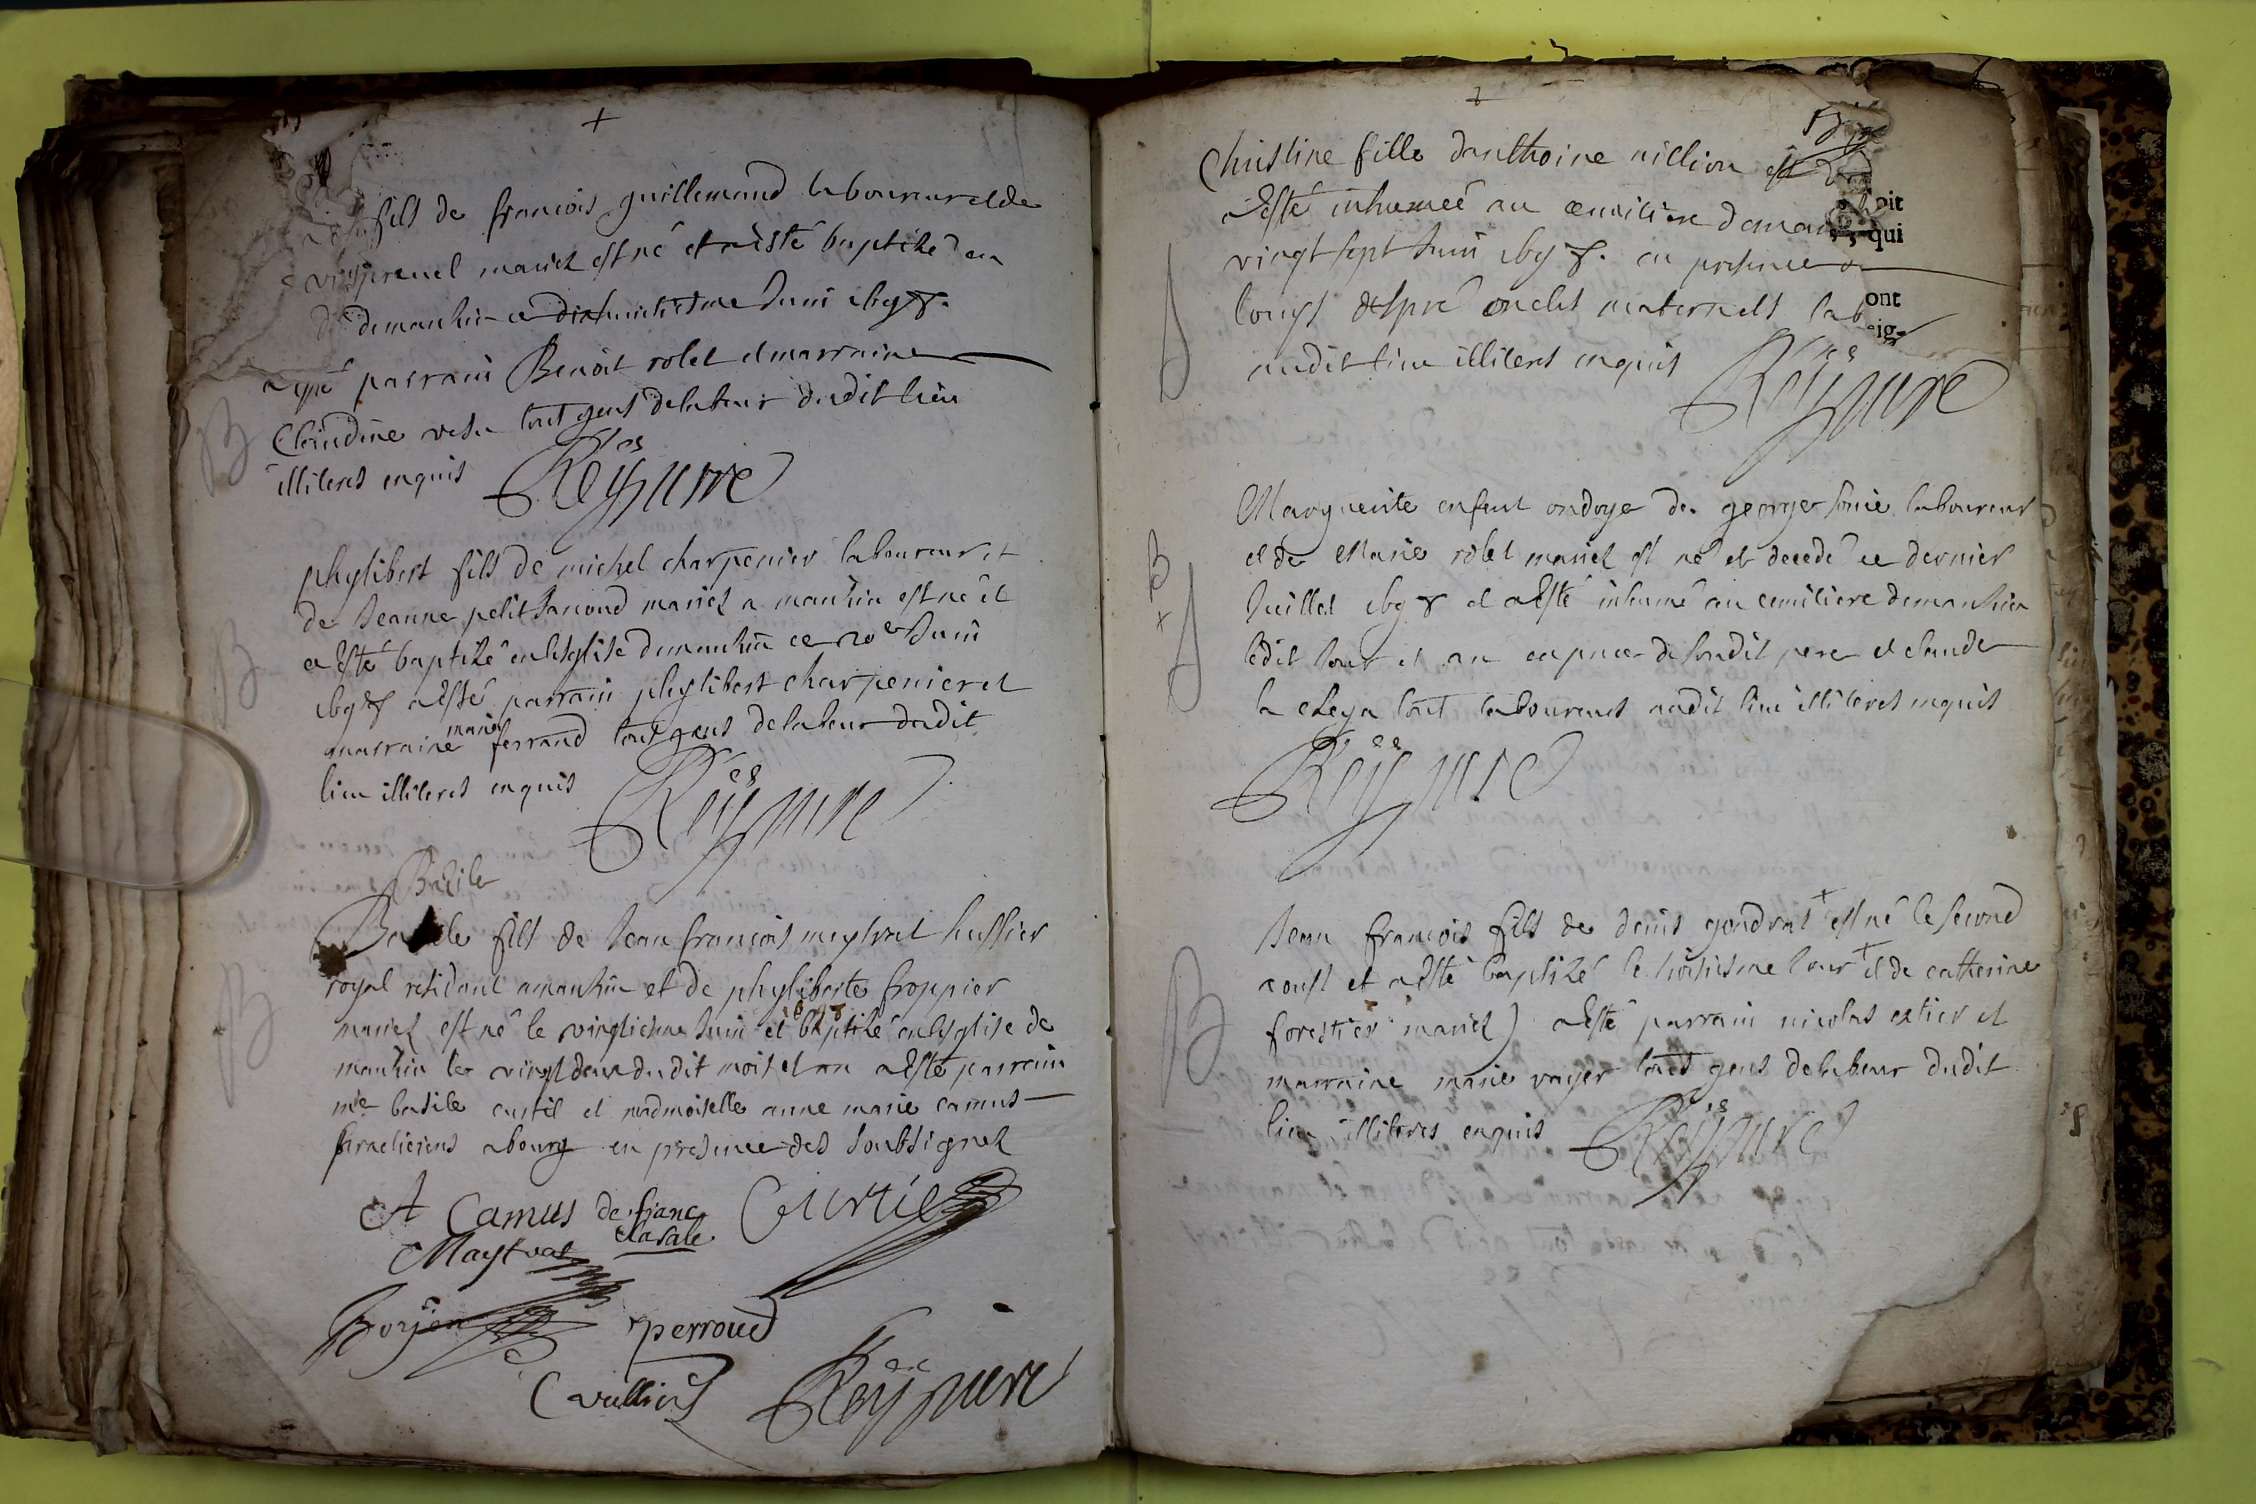 fils de françois guillemand laboureur et de
pernel mariez est né et a esté baptisé en
de manhin ce dixhuictiesme Juin
a esté parrain Benoit rolet et marraine
Claudine tout gens de labeur dudit lieu
illiteres enquis Reÿ pure
B
phylibert fils de michel charpenier laboureur et
de Jeanne petit Janond mariez a manhin est né et
a esté baptisé en lesglise de manhin ce 20e Juin
a esté parrain phylibert charpenier et
marraine marie ferrand tout gens de labeur dudit
lieu illiteres enquis Reÿ pure
B
Bazile
Bazile fils de Jean françois meytral huissier
royal residant a manhin et de phyliberte froppier
mariez est né le vingtiesme Juin et baptizé en lesglise de
manhin le vingt deux dudit mois et an a esté parrain
mre basile curtil et madmoiselle anne marie camus
praticiens a bourg en presence des soubsignez
B
A Camus de franc Curtil
clasale
Maytral
Borjon perroud
C vullier Reÿ pure
Christine fille d'anthoine nillion est
a esté inhumée au cemitiere de man
vingt sept Juin en presence de
louys despré oncles maternels lab
audit lieu illiteres enquis Reÿ pure
oit
qui
ont
eig-
Marguerite enfant ondoye de george laboureur
et de Marie rolet mariez est né et decedé ce dernier
Juillet et a esté inhumé au cemitiere de manhin
ledit Jour et an en pnce de sondit pere et claude
la tout laboureurs audit lieu illiteres enquis
Reÿ pure
B
+
Jean françois fils de denis gondrat + est né le second
aoust et a esté baptizé le troisiesme Jour + et de catherine
forestier mariez) a esté parrain nicolas et
marraine marie voyer tous gens de labeur dudit
lieu illiteres enquis Reÿ pure
B